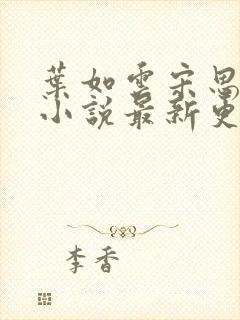 葉如雲宋思
小說最新更
李香